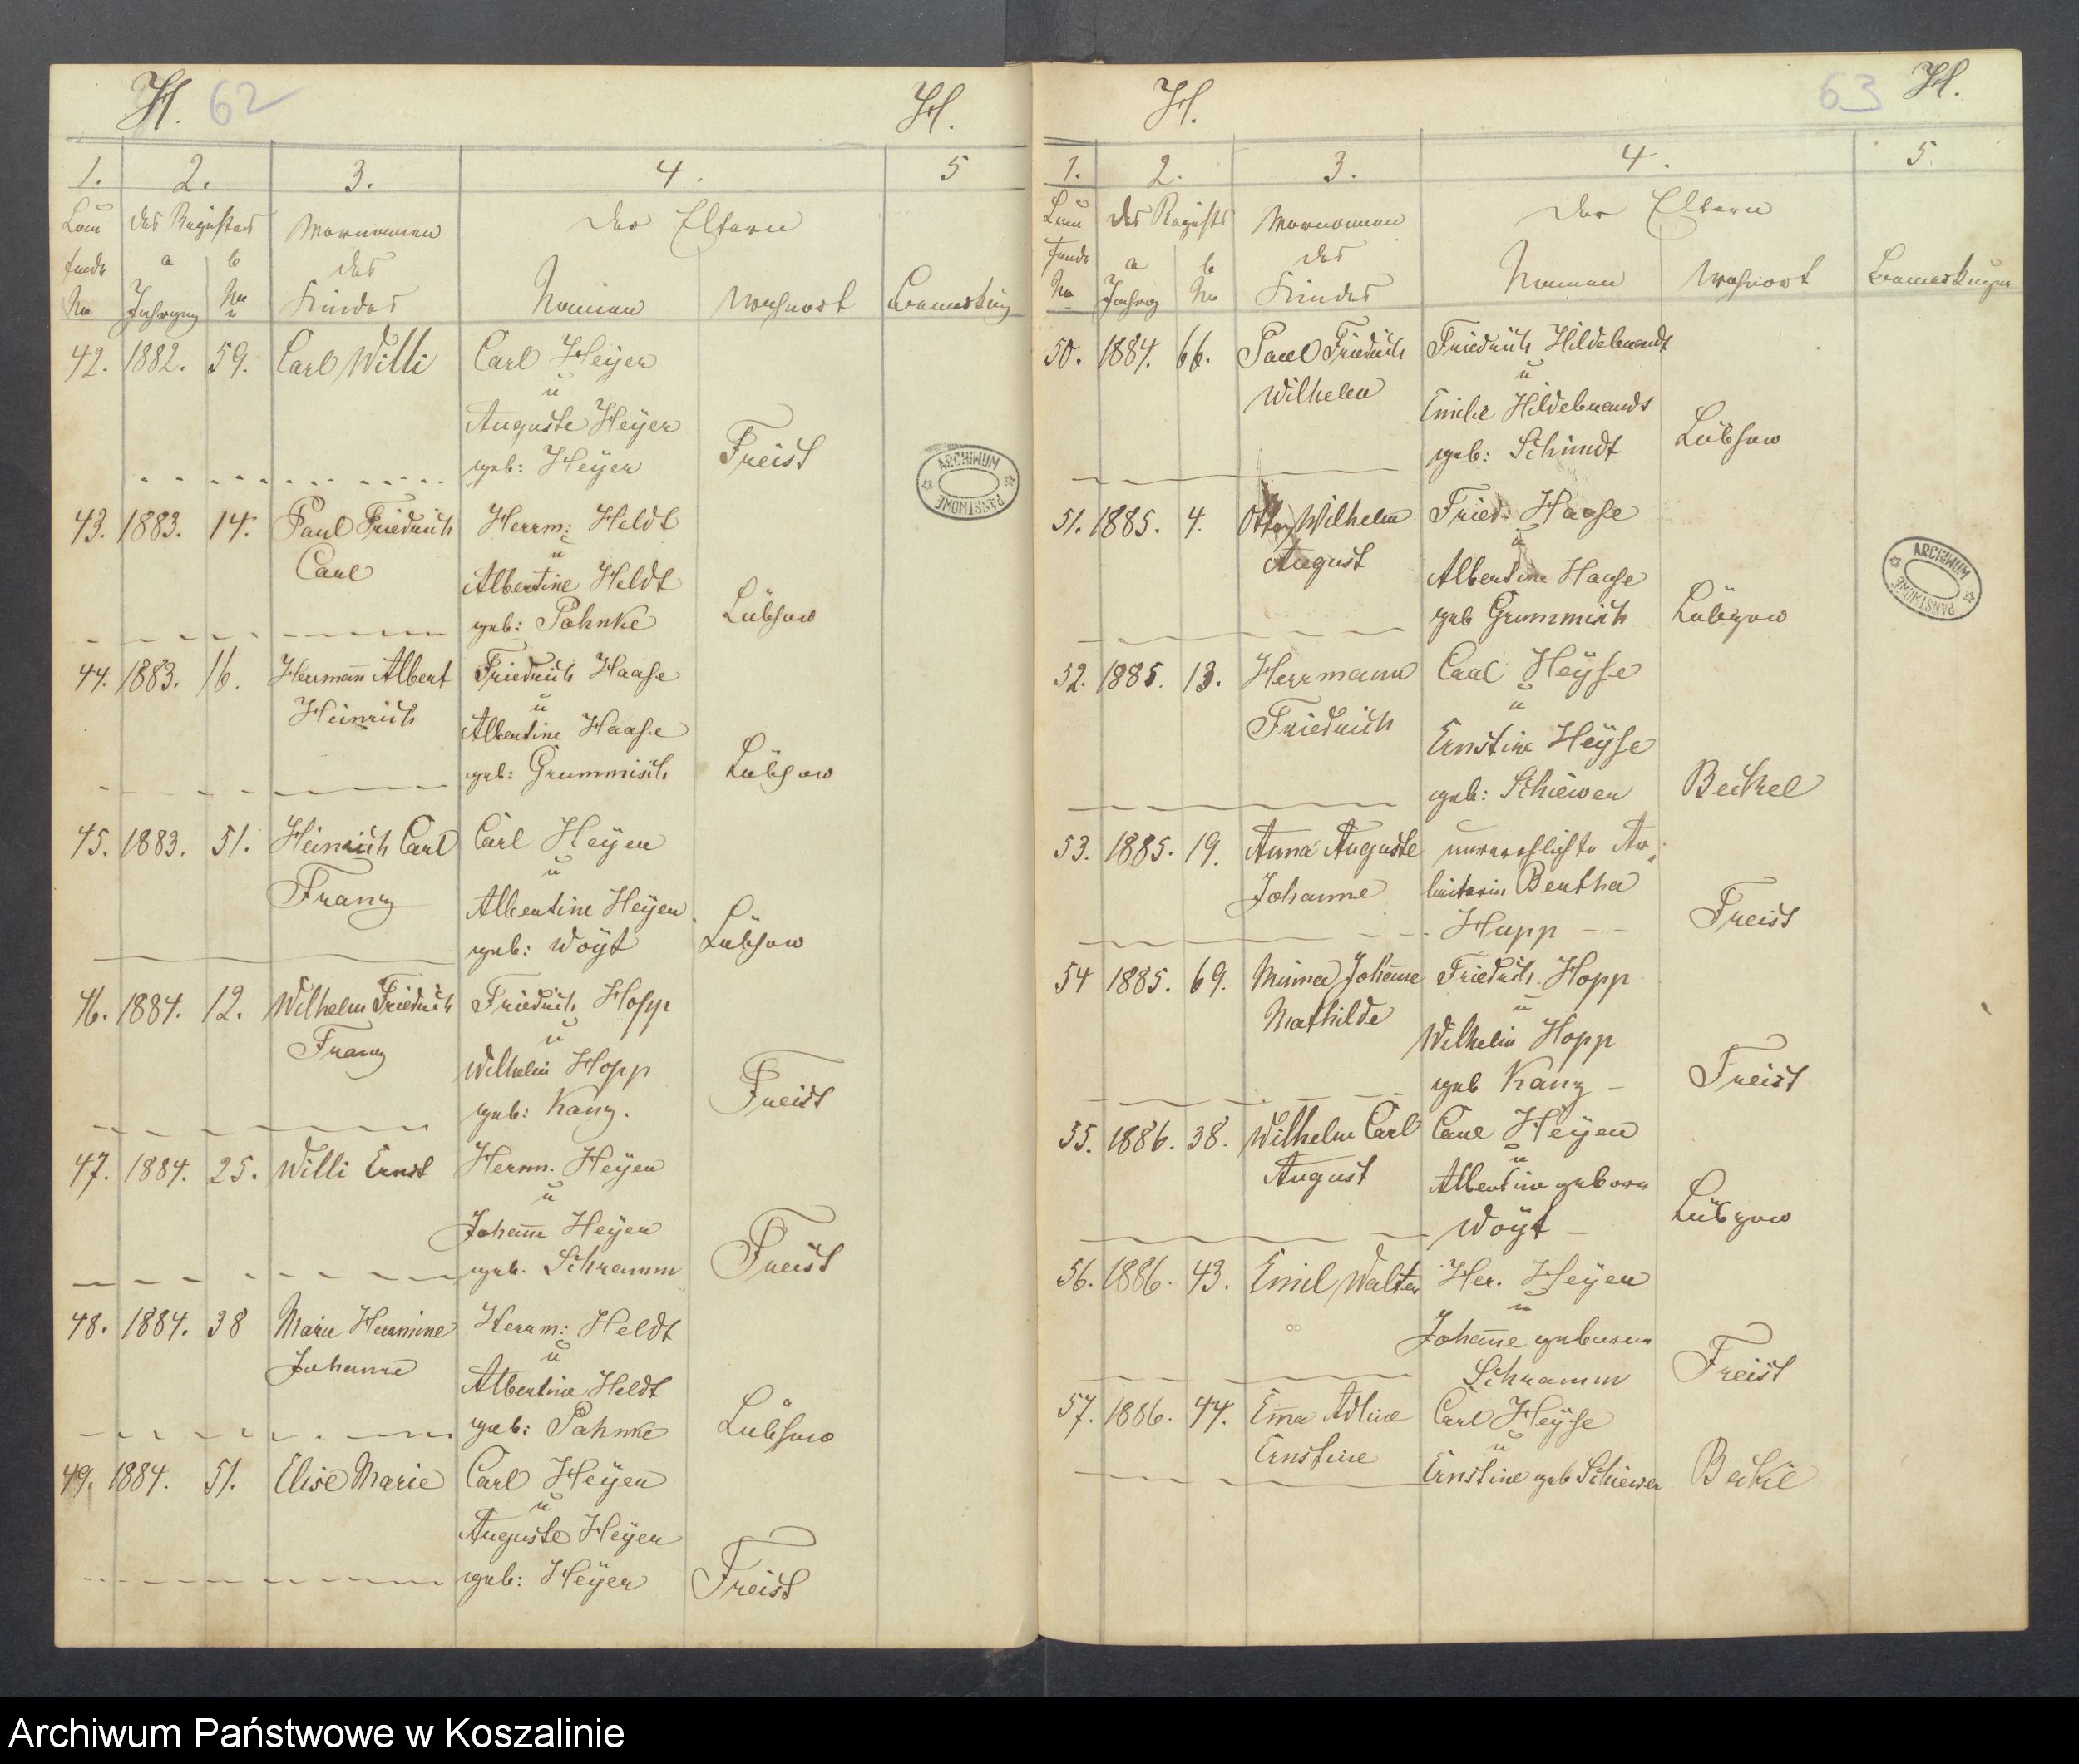 H. 62 H.
1. 2. 3. 4. 5
Lau des Registers Vornamen Der Eltern
fende a b des
No Jahrgang No Kindes Namen Wohnort Bemerkung
42. 1882. 59. Carl Willi Carl Heyer
u
Auguste Heyer
geb: Heyer Freist
43. 1883. 14. Paul Friedrich Herrm: Heldt
Carl u
Albertine Heldt
geb: Pahnke Lübsow
44. 1883. 16. Hermann Albert Friedrich Haase
Heinrich u
Albertine Haase
geb: Grummisch Lübsow
45. 1883. 51. Heinrich Carl Carl Heyen
Franz u
Albertine Heyen
geb: Woyt Lübsow
46. 1884. 12. Wilhelm Friedrich Friedrich Hopp
Franz u
Wilhelm Hopp
geb: Kanz. Freist
47. 1884. 25. Willi Ernst Herm. Heyen
u
Johanne Heyer
geb. Schramm Freist
48. 1884. 38 Marie Hermine Herrm: Heldt
Johanne u
Albertine Heldt
geb: Pahnke Lübsow
49. 1884. 51. Elise Marie Carl Heyen
u
Auguste Heyen
geb: Heyer Freist
ARCHIWUM PAŃSTWOWE
H. 63 H.
1. 2. 3. 4. 5.
Lau des Registers Vornamen Der Eltern
fende a b des
No Jahrg No Kindes Namen Wohnort Bemerkungen
50. 1884. 66. Paul Friedrich Friedrich Hildebrandt
Wilhelm u
Emilie Hildebrandt
geb: Schmidt Lübsow
51. 1885. 4. Otto Wilhelm Fried. Haase
August u
Albertine Haase
geb Grummisch Lübzow
52. 1885. 13. Herrmann Carl Heyse
Friedrich u
Ernstine Heyse
geb: Schiewer Beckel
53. 1885. 19. Anna Auguste unverehlichte Ar„
Johanne beiterin Bertha
Hupp Freist
54 1885. 69. Minna Johanne Friedrich Hopp
Mathilde u
Wilhelm Hopp
geb Kanz Freist
55. 1886. 38. Wilhelm Carl Carl Heyen
August u
Albertine geborn
Woyt Lübzow
56. 1886. 43. Emil Walter Her. Heyen
u
Johanne geborene
Schramm Freist
57. 1886. 44. Emma Adline Carl Heyse
Ernstine u
Ernstine geb Schiewer Beckel
ARCHIWUM PAŃSTWOWE
Archiwum Państwowe w Koszalinie